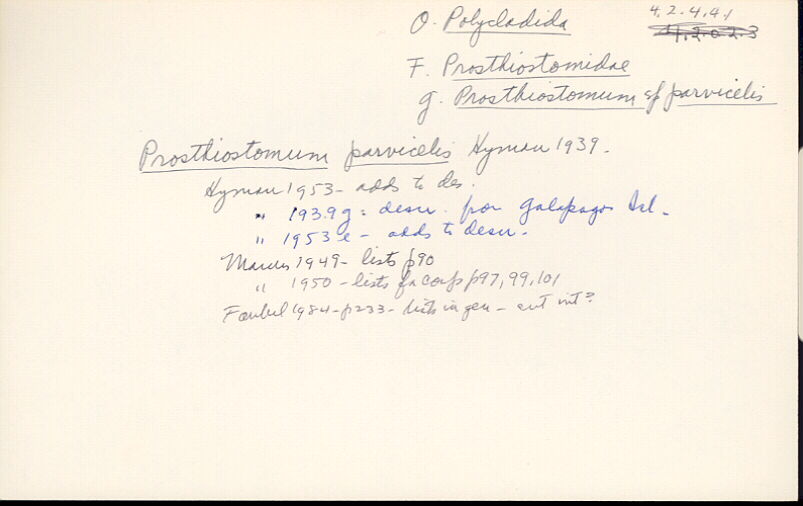 O. Polycladida
4.2.4.4.1
4.2.0.2.3
F. Prosthiostomidae
g. Prosthiostomum sp parvicelis
Prosthiostomum parvicelis Hyman 1939-
Hyman 1953- adds to des.
" 1939g: descr. from Galapagos Isl.
" 1953e - adds to descr.
Marcus 1949- lists p90
" 1950 - lists for comp p97, 99, 101
Faubel 1984- p233- lists in gen -